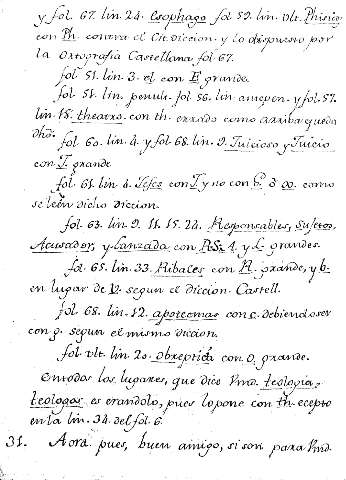 y fol. 67. lin. 24. Esophago fol. 59. lin. vlt. Phisico
con Ph. contra el Cit. Diccion. y lo dispuesto por
la Ortografia Castellana. fol. 67.
fol. 51. lin. 3. el con E grande.
fol. 51. lin. penult. fol. 56. lin. antepen. y fol. 57.
lin. 18. theatro. con th. errado como arriba queda
dho.
fol. 60. lin. 4. y fol. 68. lin. 9. Juicioso y Juicio
con J. grande.
fol. 61. lin. 4. con J y no con como
se lee en dicho diccion.
fol. 63. lin. 9. 11. 15. 24. Responsables, Sujetos,
Acusador, y Lanzada con R. S. A. y L. grandes.
fol. 65. lin. 33. Ribales con R. grande, y b.
en lugar de V. segun el diccion. Castell.
fol. 68. lin. 12. apotecmas con c. debiendo ser
con g. segun el mismo diccion.
fol. vlt. lin. 20. Obreptida con O. grande.
En todos los lugares, que dice Vmd. teologia,
teologos es errandolo, pues lo pone con th. ecepto
en la lin. 34. del fol. 6.
31. Aora pues, buen amigo, si son para Vmd.